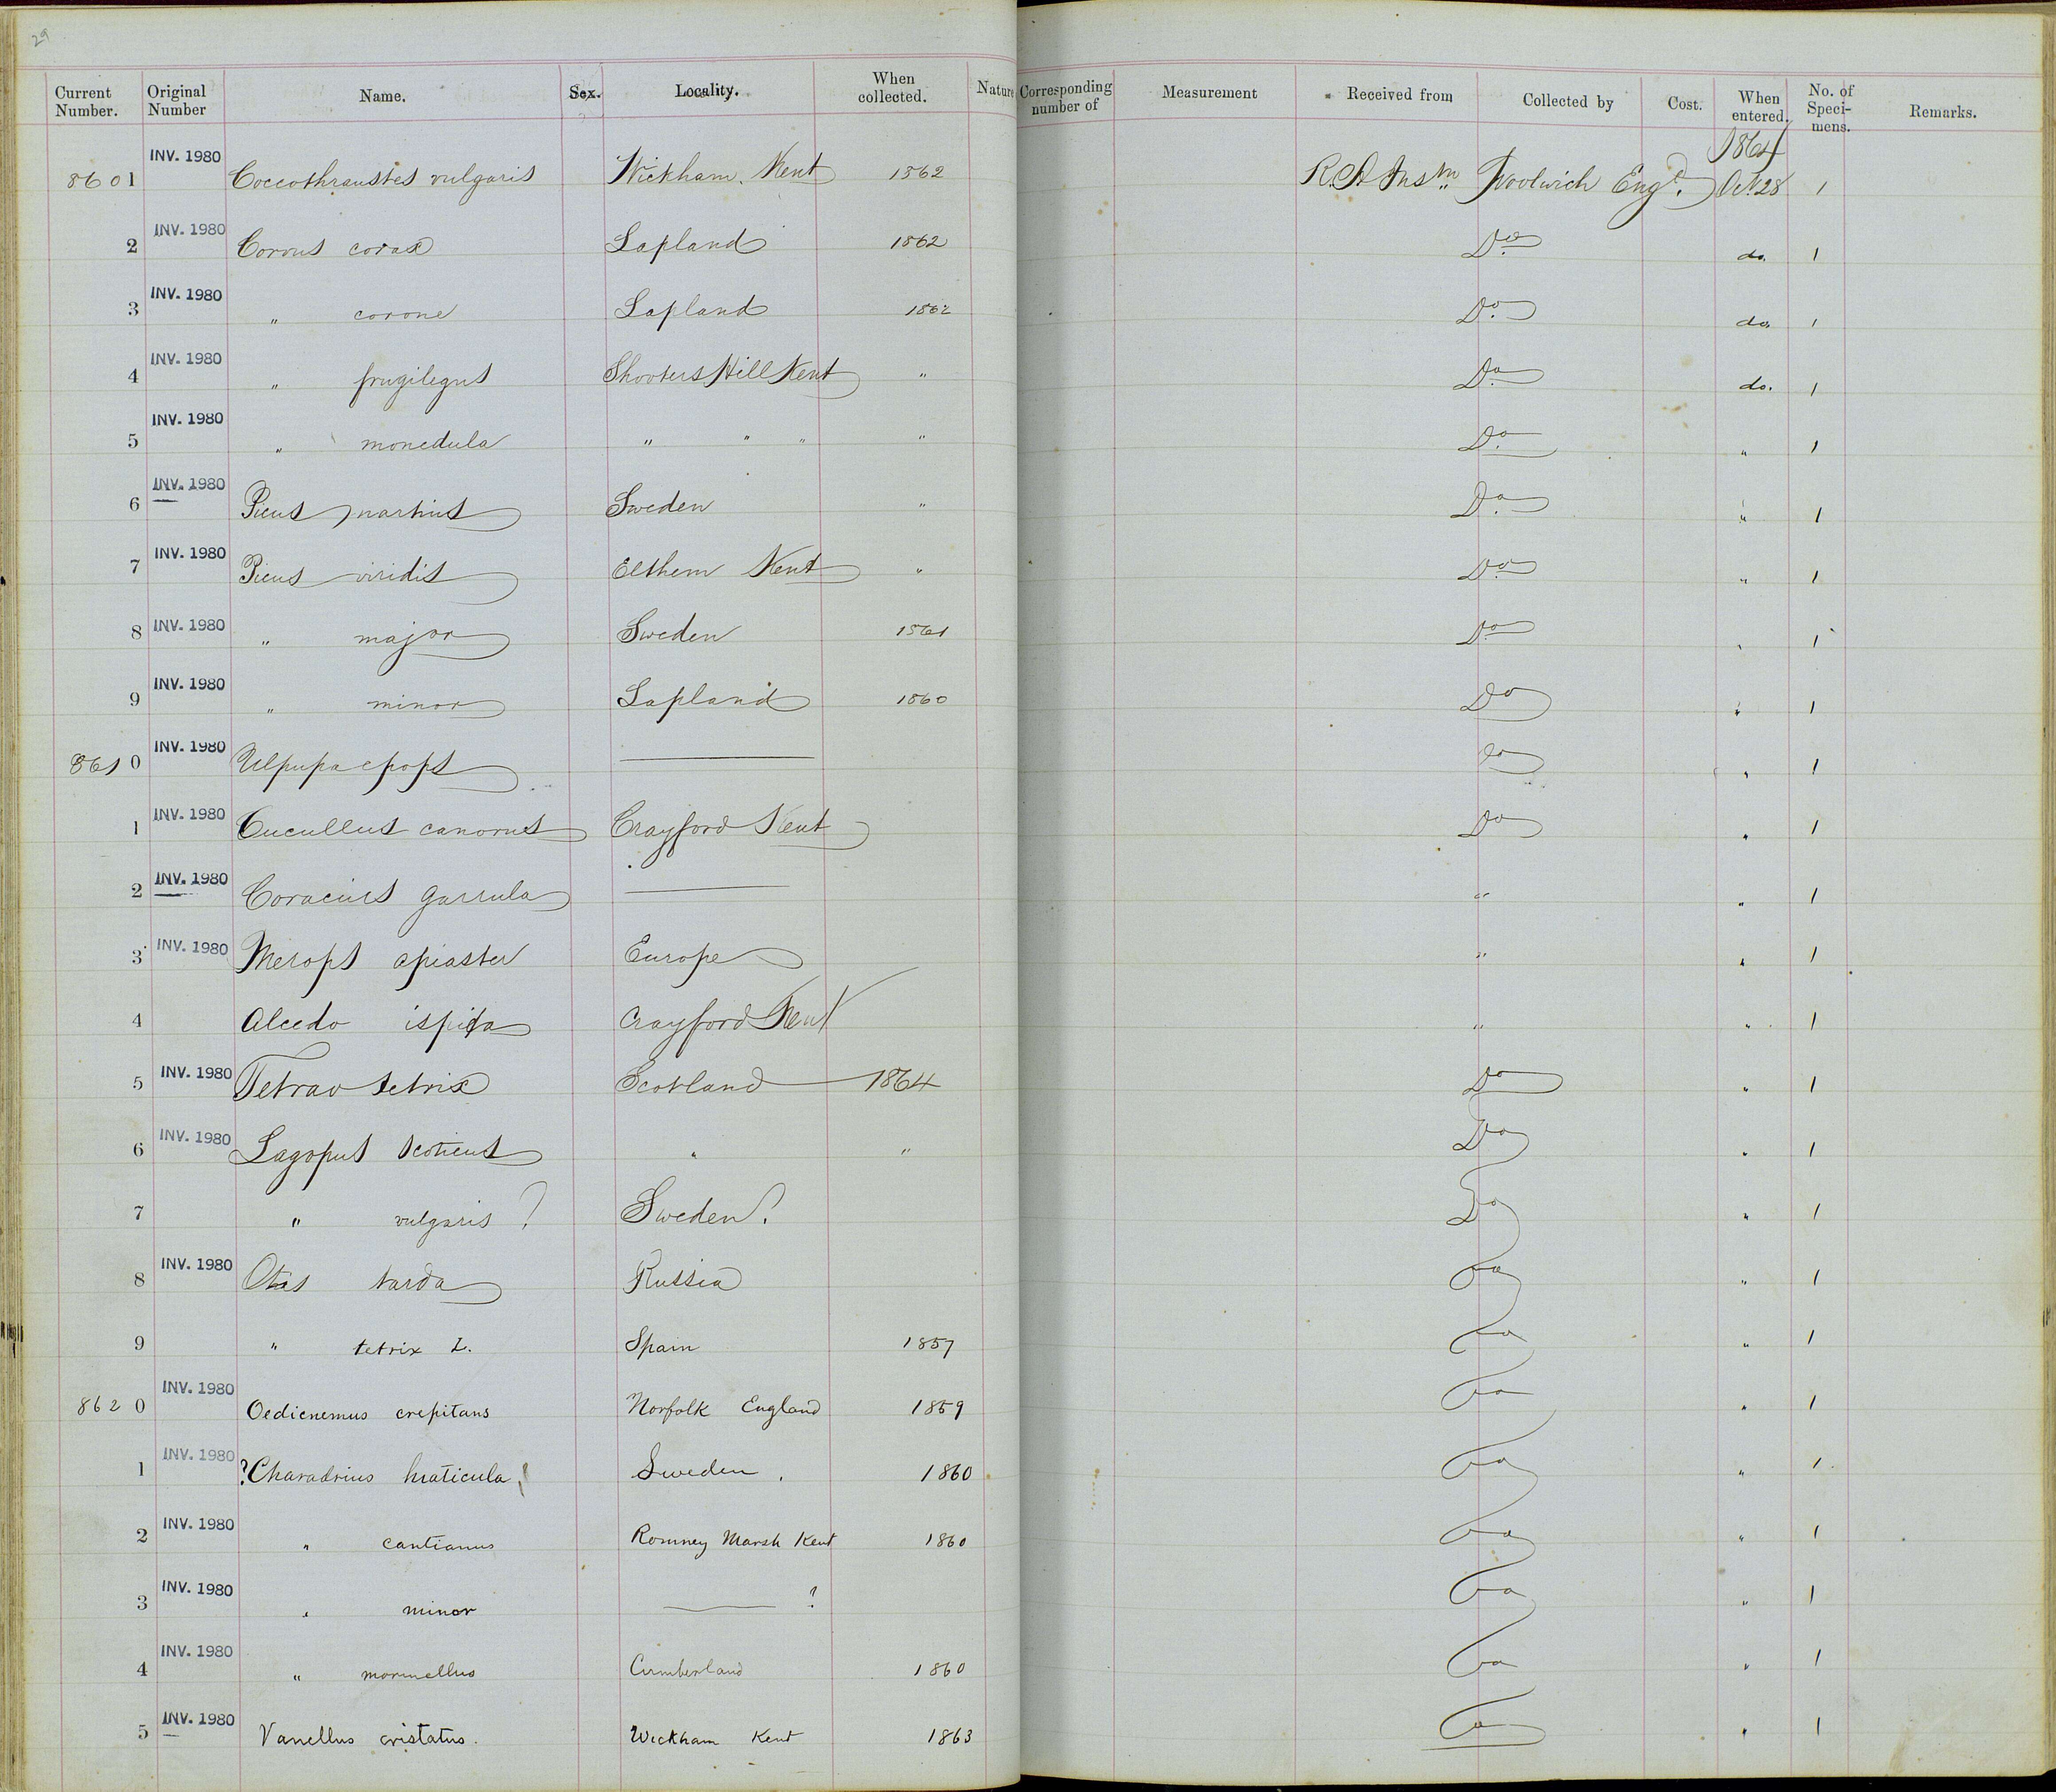 29
Current Number. Original Number Name. Sex. Locality. When collected. Nature Corresponding number of Measurement Received from Collected by Cost. When entered. No. of Speci-mens. Remarks.
1864
8601 INV. 1980 Coccothraustes vulgaris Wickham. Kent 1862 R. A Instn Woolwich Engd. Oct 28 1
2 INV. 1980 Corvus corax Lapland 1862 Do. do. 1
3 INV. 1980 " corone Lapland 1862 Do. do. 1
4 INV. 1980 " frugilegus Shooters Hill Kent " Do. do. 1
5 INV. 1980 " monedula " " " " Do. " 1
6 INV. 1980 Picus martius Sweden " Do. " 1
7 INV. 1980 Picus viridis Elthem Kent " Do. " 1
8 INV. 1980 " major Sweden 1861 Do. " 1
9 INV. 1980 " minor Lapland 1860 Do " 1
8610 INV. 1980 Ulpupa epops — do " 1
1 INV. 1980 Cucullus canorus Crayford Kent Do " 1
2 INV. 1980 Coracius garrula — " " 1
3 INV. 1980 Merops apiaster Europe " " 1
4 Alcedo ispida Crayford Kent " " 1
5 INV. 1980 Tetrao tetrix Scotland 1864 Do " 1
6 INV. 1980 Lagopus scoticus " " Do " 1
7 " vulgaris ? Sweden? Do " 1
8 INV. 1980 Otis tarda Russia Do " 1
9 " tetrix L. Spain 1857 Do " 1
8620 INV. 1980 Oedicnemus crepitans Norfolk England 1859 Do " 1
1 INV. 1980 ?Charadrius hiaticula Sweden . 1860 Do " 1
2 INV. 1980 " cantianus Romney Marsh Kent 1860 Do " 1
3 INV. 1980 " minor — ? Do " 1
4 INV. 1980 " morinellus Cumberland 1860 Do " 1
5 INV. 1980 Vanellus cristatus. Wickham Kent 1863 Do " 1